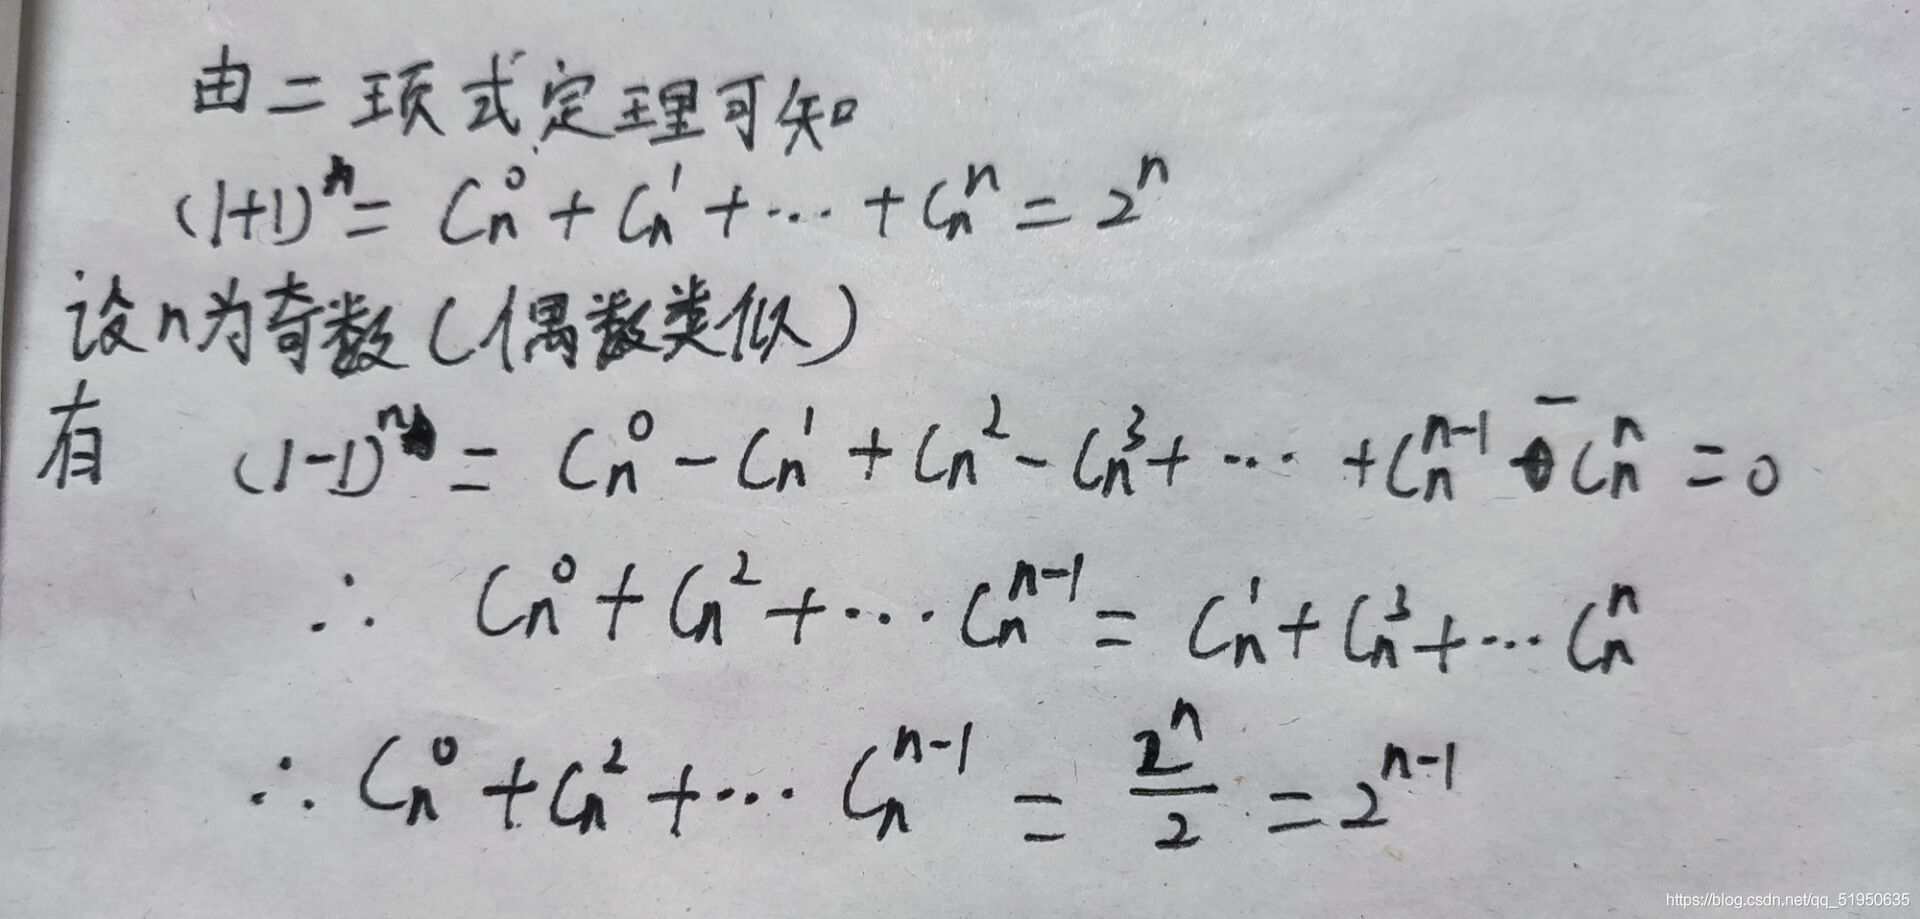 由二项式定理可知
(1+1)^n = C_n^0 + C_n^1 + ... + C_n^n = 2^n
设n为奇数(偶数类似)
有 (1-1)^n = C_n^0 - C_n^1 + C_n^2 - C_n^3 + ... + C_n^{n-1} - C_n^n = 0
∴ C_n^0 + C_n^2 + ... C_n^{n-1} = C_n^1 + C_n^3 + ... C_n^n
∴ C_n^0 + C_n^2 + ... C_n^{n-1} = \frac{2^n}{2} = 2^{n-1}
https://blog.csdn.net/qq_51950635